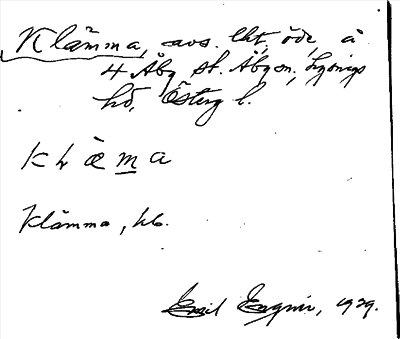 Klämma, avs. lht, öde, å
4 Åby st. Åby sn, Lysings
hd,Österg l.
K L æ m a
Klämma, hb.
Emil Engnér, 1929.